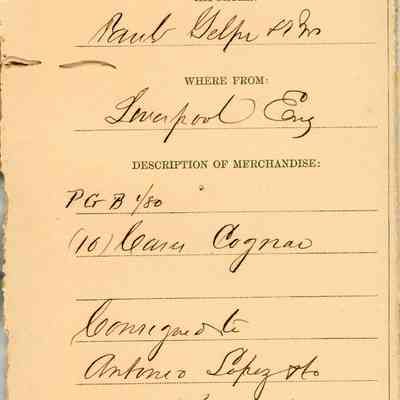 Paul Gelpi & Bro
WHERE FROM:
Liverpool Eng
DESCRIPTION OF MERCHANDISE:
P G B 1/80
(10) Cases Cognac
Consigned to
Antonio Lopez & Co